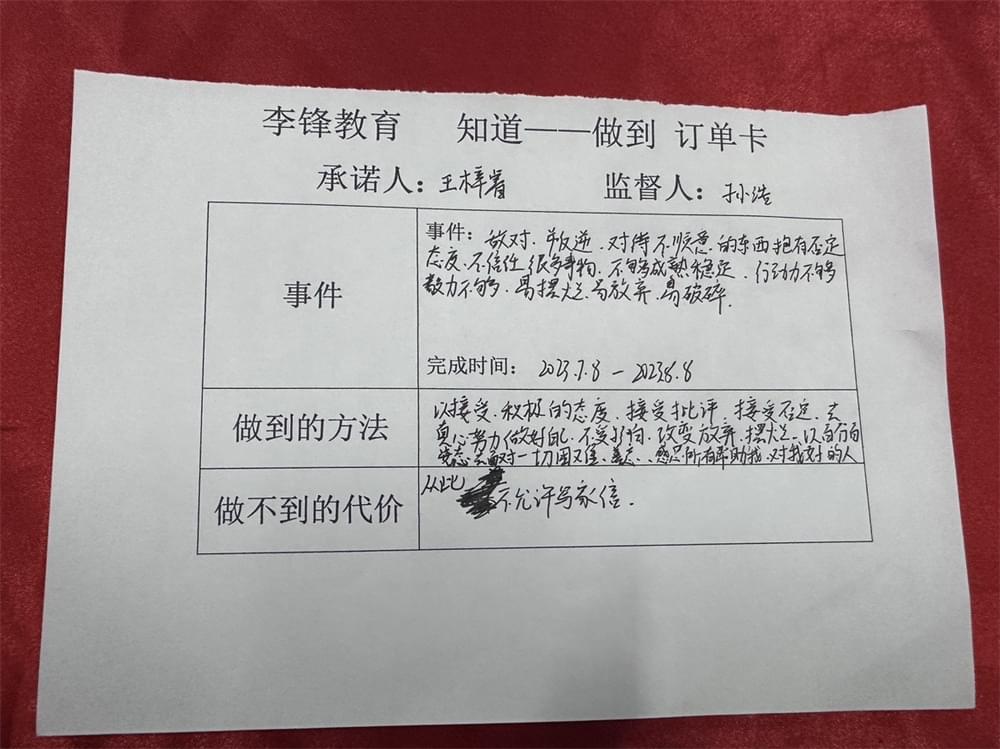 李锋教育 知道——做到 订单卡
承诺人：王梓 监督人：孙浩
事件
事件：敌对、叛逆、对待不顺意的东西抱有否定
态度、不信任很多事物、不够成熟稳定、行动力不够
毅力不够、易摆烂、易放弃、易破碎.
完成时间：2023.7.8－2023.8.8
做到的方法
以接受、积极的态度、接受批评、接受否定、去
真心努力做好自己、不受影响、改变放弃、摆烂、以百分百
态去面对一切困难、善态、感恩所有帮助我、对我好的人
做不到的代价
从此 不允许写家信.